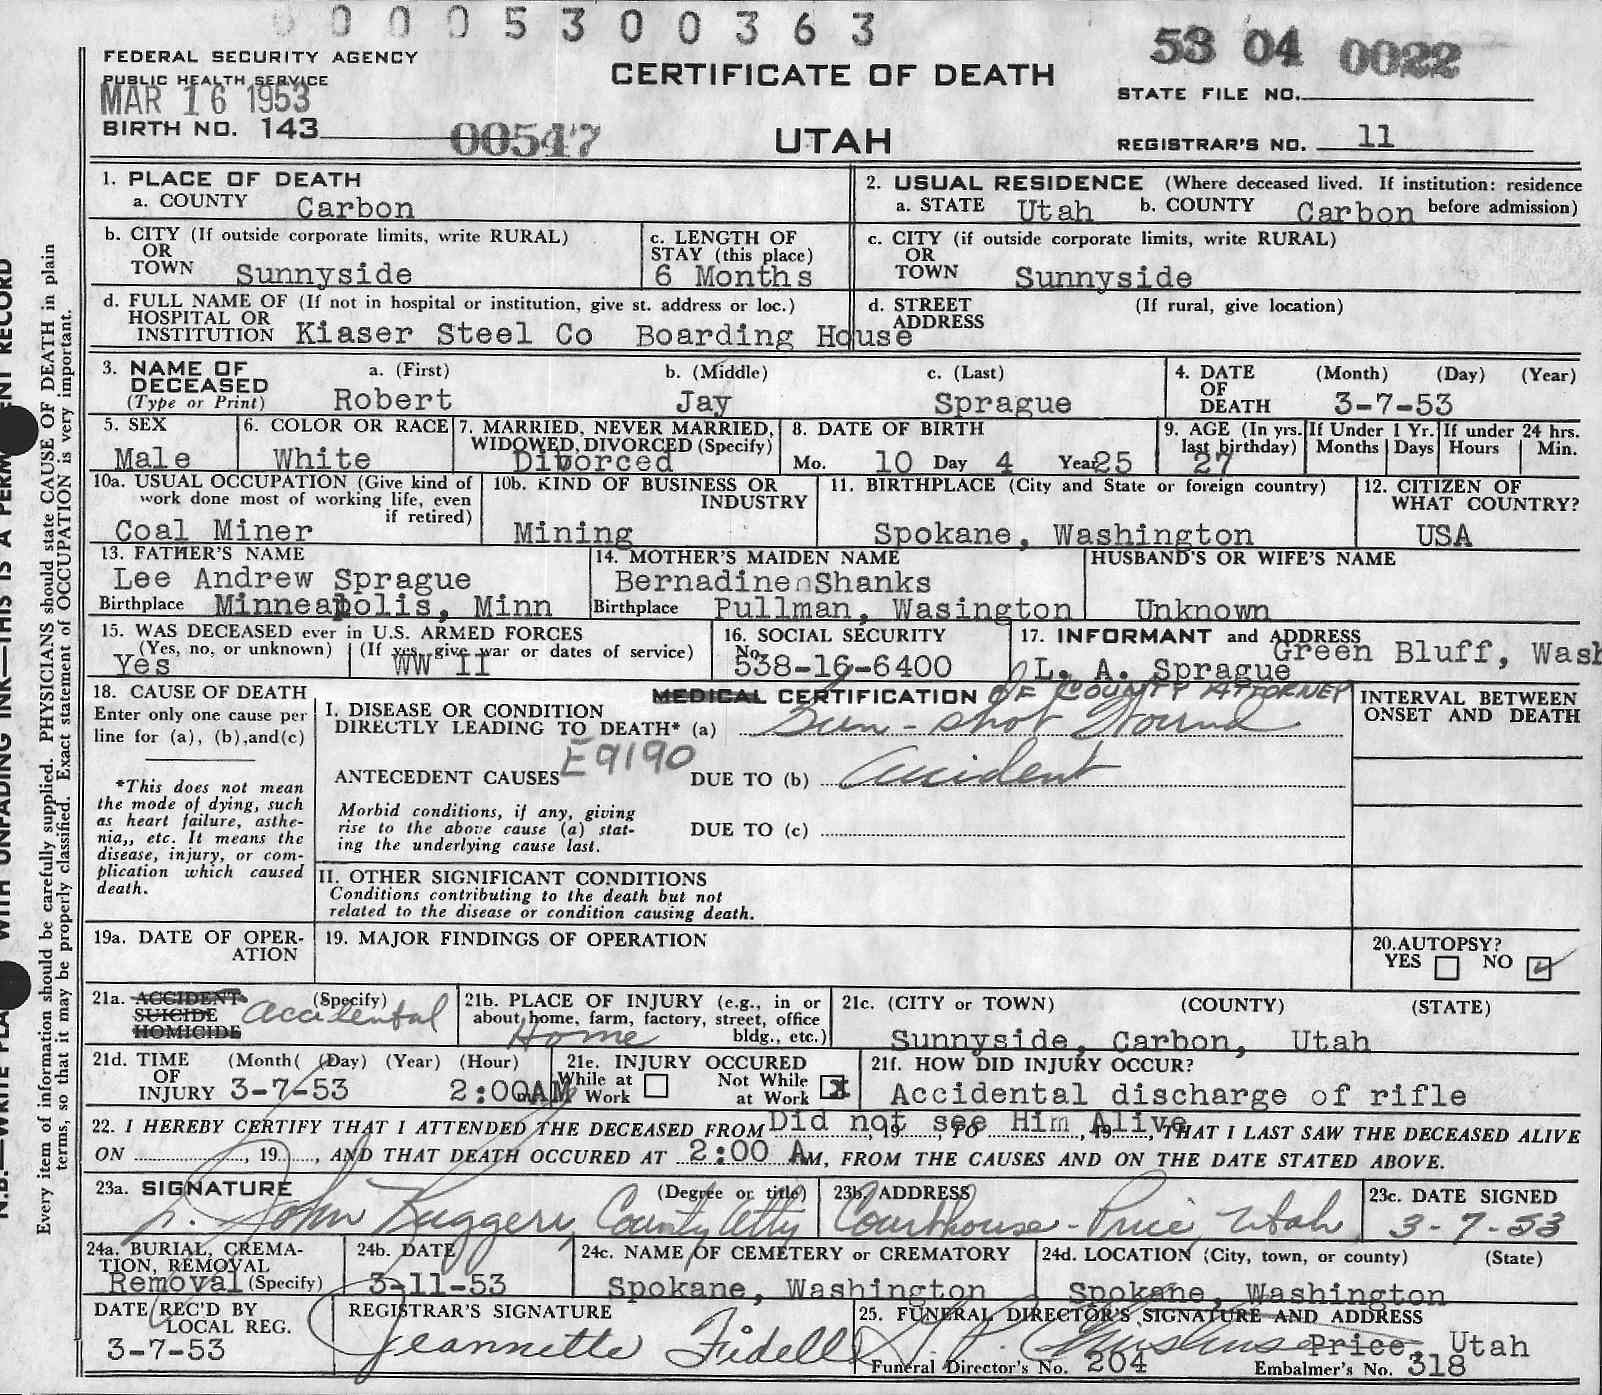 0 0 0 5 3 0 0 3 6 3
53 04 0022
FEDERAL SECURITY AGENCY
PUBLIC HEALTH SERVICE
MAR 16 1953
CERTIFICATE OF DEATH
STATE FILE NO.
BIRTH NO. 143
00547
UTAH
REGISTRAR'S NO. 11
1. PLACE OF DEATH
a. COUNTY Carbon
2. USUAL RESIDENCE (Where deceased lived. If institution: residence
a. STATE Utah b. COUNTY Carbon before admission)
b. CITY (If outside corporate limits, write RURAL)
OR
TOWN Sunnyside
c. LENGTH OF
STAY (this place)
6 Months
c. CITY (if outside corporate limits, write RURAL)
OR
TOWN Sunnyside
d. FULL NAME OF (If not in hospital or institution, give st. address or loc.)
HOSPITAL OR
INSTITUTION Kiaser Steel Co Boarding House
d. STREET (If rural, give location)
ADDRESS
3. NAME OF
DECEASED
(Type or Print)
a. (First) b. (Middle) c. (Last)
Robert Jay Sprague
4. DATE (Month) (Day) (Year)
OF
DEATH 3-7-53
5. SEX
Male
6. COLOR OR RACE
White
7. MARRIED, NEVER MARRIED,
WIDOWED, DIVORCED (Specify)
Divorced
8. DATE OF BIRTH
Mo. 10 Day 4 Year 25
9. AGE (In yrs.
last birthday)
27
If Under 1 Yr.
Months Days
If under 24 hrs.
Hours Min.
10a. USUAL OCCUPATION (Give kind of
work done most of working life, even
if retired)
Coal Miner
10b. KIND OF BUSINESS OR
INDUSTRY
Mining
11. BIRTHPLACE (City and State or foreign country)
Spokane, Washington
12. CITIZEN OF
WHAT COUNTRY?
USA
13. FATHER'S NAME
Lee Andrew Sprague
Birthplace Minneapolis, Minn
14. MOTHER'S MAIDEN NAME
Bernadine Shanks
Birthplace Pullman, Wasington
HUSBAND'S OR WIFE'S NAME
Unknown
15. WAS DECEASED ever in U.S. ARMED FORCES
(Yes, no, or unknown) (If yes, give war or dates of service)
Yes WW II
16. SOCIAL SECURITY
No.
538-16-6400
17. INFORMANT and ADDRESS
Green Bluff, Wash
L. A. Sprague
18. CAUSE OF DEATH
Enter only one cause per
line for (a), (b), and (c)
*This does not mean
the mode of dying, such
as heart failure, asthe-
nia,, etc. It means the
disease, injury, or com-
plication which caused
death.
MEDICAL CERTIFICATION OF COUNTY ATTORNEY
I. DISEASE OR CONDITION
DIRECTLY LEADING TO DEATH* (a) Gun-shot Wound
E9190
ANTECEDENT CAUSES DUE TO (b) Accident
Morbid conditions, if any, giving
rise to the above cause (a) stat-
ing the underlying cause last.
DUE TO (c)
II. OTHER SIGNIFICANT CONDITIONS
Conditions contributing to the death but not
related to the disease or condition causing death.
INTERVAL BETWEEN
ONSET AND DEATH
19a. DATE OF OPER-
ATION
19. MAJOR FINDINGS OF OPERATION
20. AUTOPSY?
YES NO
21a. ACCIDENT (Specify)
SUICIDE
HOMICIDE
Accidental
21b. PLACE OF INJURY (e.g., in or
about home, farm, factory, street, office
bldg., etc.)
Home
21c. (CITY or TOWN) (COUNTY) (STATE)
Sunnyside, Carbon, Utah
21d. TIME (Month( (Day) (Year) (Hour)
OF
INJURY 3-7-53 2:00AM m.
21e. INJURY OCCURED
While at Work Not While at Work X
21f. HOW DID INJURY OCCUR?
Accidental discharge of rifle
22. I HEREBY CERTIFY THAT I ATTENDED THE DECEASED FROM Did not see Him Alive, 19, TO, 19, THAT I LAST SAW THE DECEASED ALIVE
ON, 19, AND THAT DEATH OCCURED AT 2:00 A M, FROM THE CAUSES AND ON THE DATE STATED ABOVE.
23a. SIGNATURE (Degree or title)
S. John Ruggeri County Atty
23b. ADDRESS
Courthouse - Price, Utah
23c. DATE SIGNED
3-7-53
24a. BURIAL, CREMA-
TION, REMOVAL
Removal (Specify)
24b. DATE
3-11-53
24c. NAME OF CEMETERY or CREMATORY
Spokane, Washington
24d. LOCATION (City, town, or county) (State)
Spokane, Washington
DATE REC'D BY
LOCAL REG.
3-7-53
REGISTRAR'S SIGNATURE
Jeannette Fidell
25. FUNERAL DIRECTOR'S SIGNATURE AND ADDRESS
Price, Utah
Funeral Director's No. 204 Embalmer's No. 318
Every item of information should be carefully supplied. PHYSICIANS should state CAUSE OF DEATH in plain
terms, so that it may be properly classified. Exact statement of OCCUPATION is very important.